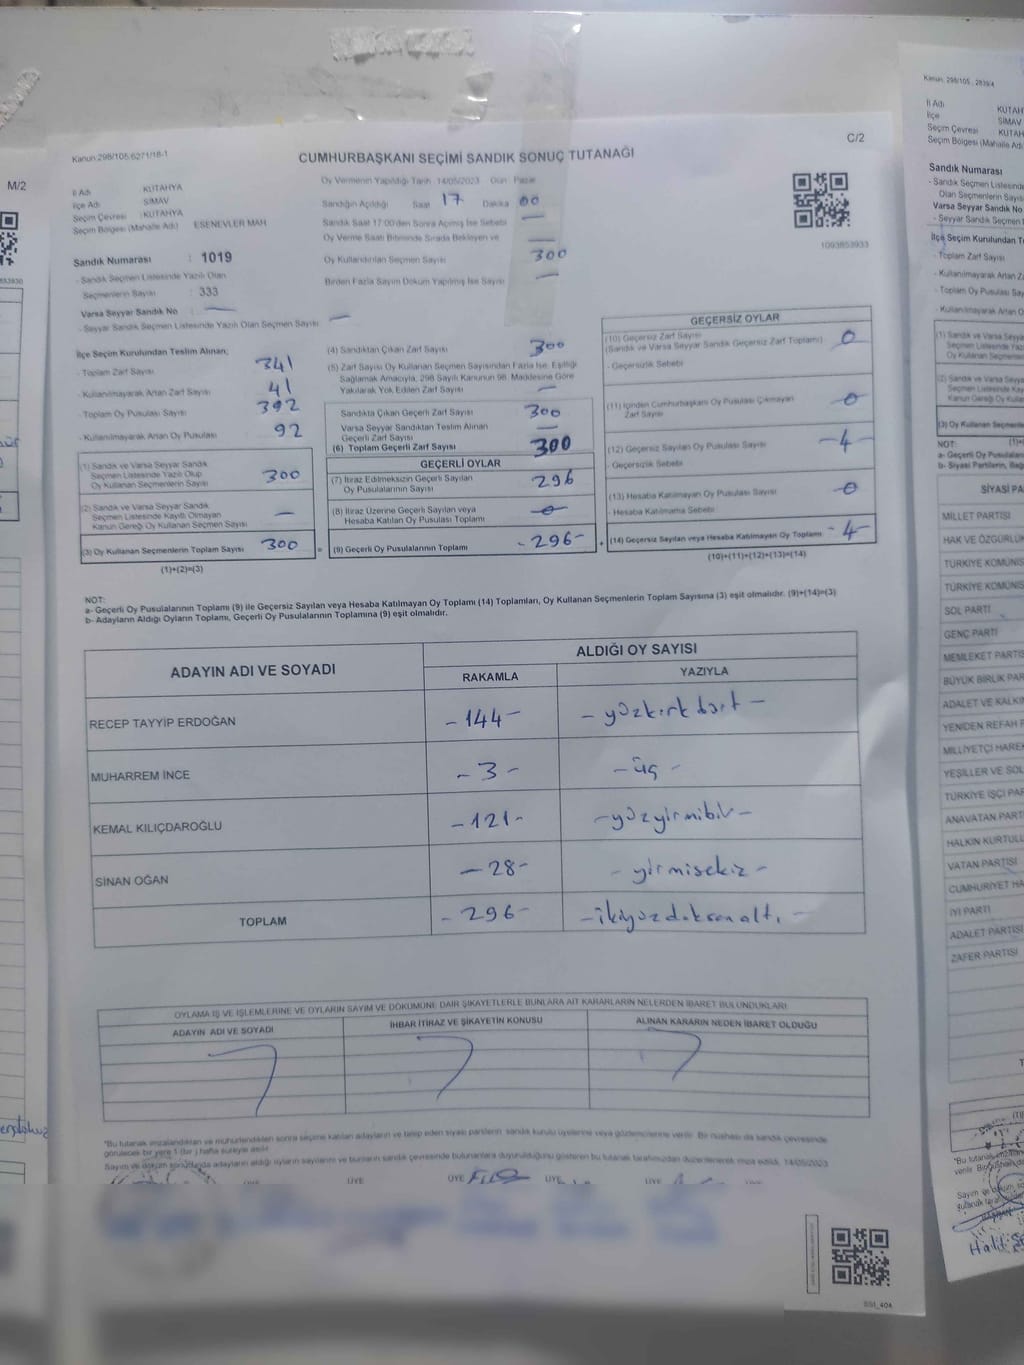 Kanun:298/105,6271/18-1
C/2
CUMHURBAŞKANI SEÇİMİ SANDIK SONUÇ TUTANAĞI
İl Adı KÜTAHYA
İlçe Adı SİMAV
Seçim Çevresi :KÜTAHYA
Seçim Bölgesi (Mahalle Adı) ESENEVLER MAH
Oy Vermenin Yapıldığı Tarih 14/05/2023 Gün Pazar
Sandığın Açıldığı Saat 17 Dakika 00
Sandık Saat 17:00'den Sonra Açılmış İse Sebebi —
Oy Verme Saati Bitiminde Sırada Bekleyen ve —
Oy Kullandırılan Seçmen Sayısı 300
Birden Fazla Sayım Döküm Yapılmış İse Sayısı —
1093853933
Sandık Numarası : 1019
- Sandık Seçmen Listesinde Yazılı Olan
Seçmenlerin Sayısı : 333
Varsa Seyyar Sandık No : —
- Seyyar Sandık Seçmen Listesinde Yazılı Olan Seçmen Sayısı —
İlçe Seçim Kurulundan Teslim Alınan;
- Toplam Zarf Sayısı 341
- Kullanılmayarak Artan Zarf Sayısı 41
- Toplam Oy Pusulası Sayısı 392
- Kullanılmayarak Artan Oy Pusulası 92
(1) Sandık ve Varsa Seyyar Sandık
Seçmen Listesinde Yazılı Olup
Oy Kullanan Seçmenlerin Sayısı 300
(2) Sandık ve Varsa Seyyar Sandık
Seçmen Listesinde Kayıtlı Olmayan
Kanun Gereği Oy Kullanan Seçmen Sayısı —
(3) Oy Kullanan Seçmenlerin Toplam Sayısı 300
(1)+(2)=(3)
(4) Sandıktan Çıkan Zarf Sayısı 300
(5) Zarf Sayısı Oy Kullanan Seçmen Sayısından Fazla İse, Eşitliği
Sağlamak Amacıyla, 298 Sayılı Kanunun 98. Maddesine Göre
Yakılarak Yok Edilen Zarf Sayısı —
Sandıkta Çıkan Geçerli Zarf Sayısı 300
Varsa Seyyar Sandıktan Teslim Alınan
Geçerli Zarf Sayısı —
(6) Toplam Geçerli Zarf Sayısı 300
GEÇERLİ OYLAR
(7) İtiraz Edilmeksizin Geçerli Sayılan
Oy Pusulalarının Sayısı 296
(8) İtiraz Üzerine Geçerli Sayılan veya
Hesaba Katılan Oy Pusulası Toplamı 0
= (9) Geçerli Oy Pusulalarının Toplamı -296-
GEÇERSİZ OYLAR
(10) Geçersiz Zarf Sayısı
(Sandık ve Varsa Seyyar Sandık Geçersiz Zarf Toplamı) 0
- Geçersizlik Sebebi
(11) İçinden Cumhurbaşkanı Oy Pusulası Çıkmayan
Zarf Sayısı 0
(12) Geçersiz Sayılan Oy Pusulası Sayısı -4
- Geçersizlik Sebebi
(13) Hesaba Katılmayan Oy Pusulası Sayısı 0
- Hesaba Katılmama Sebebi
+ (14) Geçersiz Sayılan veya Hesaba Katılmayan Oy Toplamı -4-
(10)+(11)+(12)+(13)=(14)
NOT:
a- Geçerli Oy Pusulalarının Toplamı (9) ile Geçersiz Sayılan veya Hesaba Katılmayan Oy Toplamı (14) Toplamları, Oy Kullanan Seçmenlerin Toplam Sayısına (3) eşit olmalıdır. (9)+(14)=(3)
b- Adayların Aldığı Oyların Toplamı, Geçerli Oy Pusulalarının Toplamına (9) eşit olmalıdır.
ADAYIN ADI VE SOYADI ALDIĞI OY SAYISI
RAKAMLA YAZIYLA
RECEP TAYYİP ERDOĞAN -144- -yüzkırkdört-
MUHARREM İNCE -3- -üç-
KEMAL KILIÇDAROĞLU -121- -yüzyirmibir-
SİNAN OĞAN -28- -yirmisekiz-
TOPLAM -296- -ikiyüzdoksanaltı-
OYLAMA İŞ VE İŞLEMLERİNE VE OYLARIN SAYIM VE DÖKÜMÜNE DAİR ŞİKAYETLERLE BUNLARA AİT KARARLARIN NELERDEN İBARET BULUNDUKLARI
ADAYIN ADI VE SOYADI İHBAR İTİRAZ VE ŞİKAYETİN KONUSU ALINAN KARARIN NEDEN İBARET OLDUĞU
*Bu tutanak imzalandıktan ve mühürlendikten sonra seçime katılan adayların ve talep eden siyasi partilerin sandık kurulu üyelerine veya gözlemcilerine verilir. Bir nüshası da sandık çevresinde
görülecek bir yere 1 (bir) hafta süreyle asılır.
Sayım ve döküm sonucunda adayların aldığı oyların sayılarını ve bunların sandık çevresinde bulunanlara duyurulduğunu gösteren bu tutanak tarafımızdan düzenlenerek imza edildi. 14/05/2023
ÜYE ÜYE ÜYE ÜYE ÜYE
M/2
Kanun: 298/105, 2839/4
İl Adı KÜTAHY
İlçe SİMAV
Seçim Çevresi KÜTAH
Seçim Bölgesi (Mahalle Adı
Sandık Numarası
- Sandık Seçmen Listesinde
Olan Seçmenlerin Sayıs
Varsa Seyyar Sandık No
- Seyyar Sandık Seçmen L
İlçe Seçim Kurulundan Te
- Toplam Zarf Sayısı
- Kullanılmayarak Artan Z
- Toplam Oy Pusulası Sayı
- Kullanılmayarak Artan O
NOT:
a- Geçerli Oy Pusulaların
b- Siyasi Partilerin, Bağ
SİYASİ PA
MİLLET PARTİSİ
HAK VE ÖZGÜRLÜK
TÜRKİYE KOMÜNİS
TÜRKİYE KOMÜNİS
SOL PARTİ
GENÇ PARTİ
MEMLEKET PARTİS
BÜYÜK BİRLİK PAR
ADALET VE KALKIN
YENİDEN REFAH P
MİLLİYETÇİ HAREK
YEŞİLLER VE SOL
TÜRKİYE İŞÇİ PAR
ANAVATAN PARTİ
HALKIN KURTULU
VATAN PARTİSİ
CUMHURİYET HA
İYİ PARTİ
ADALET PARTİSİ
ZAFER PARTİSİ